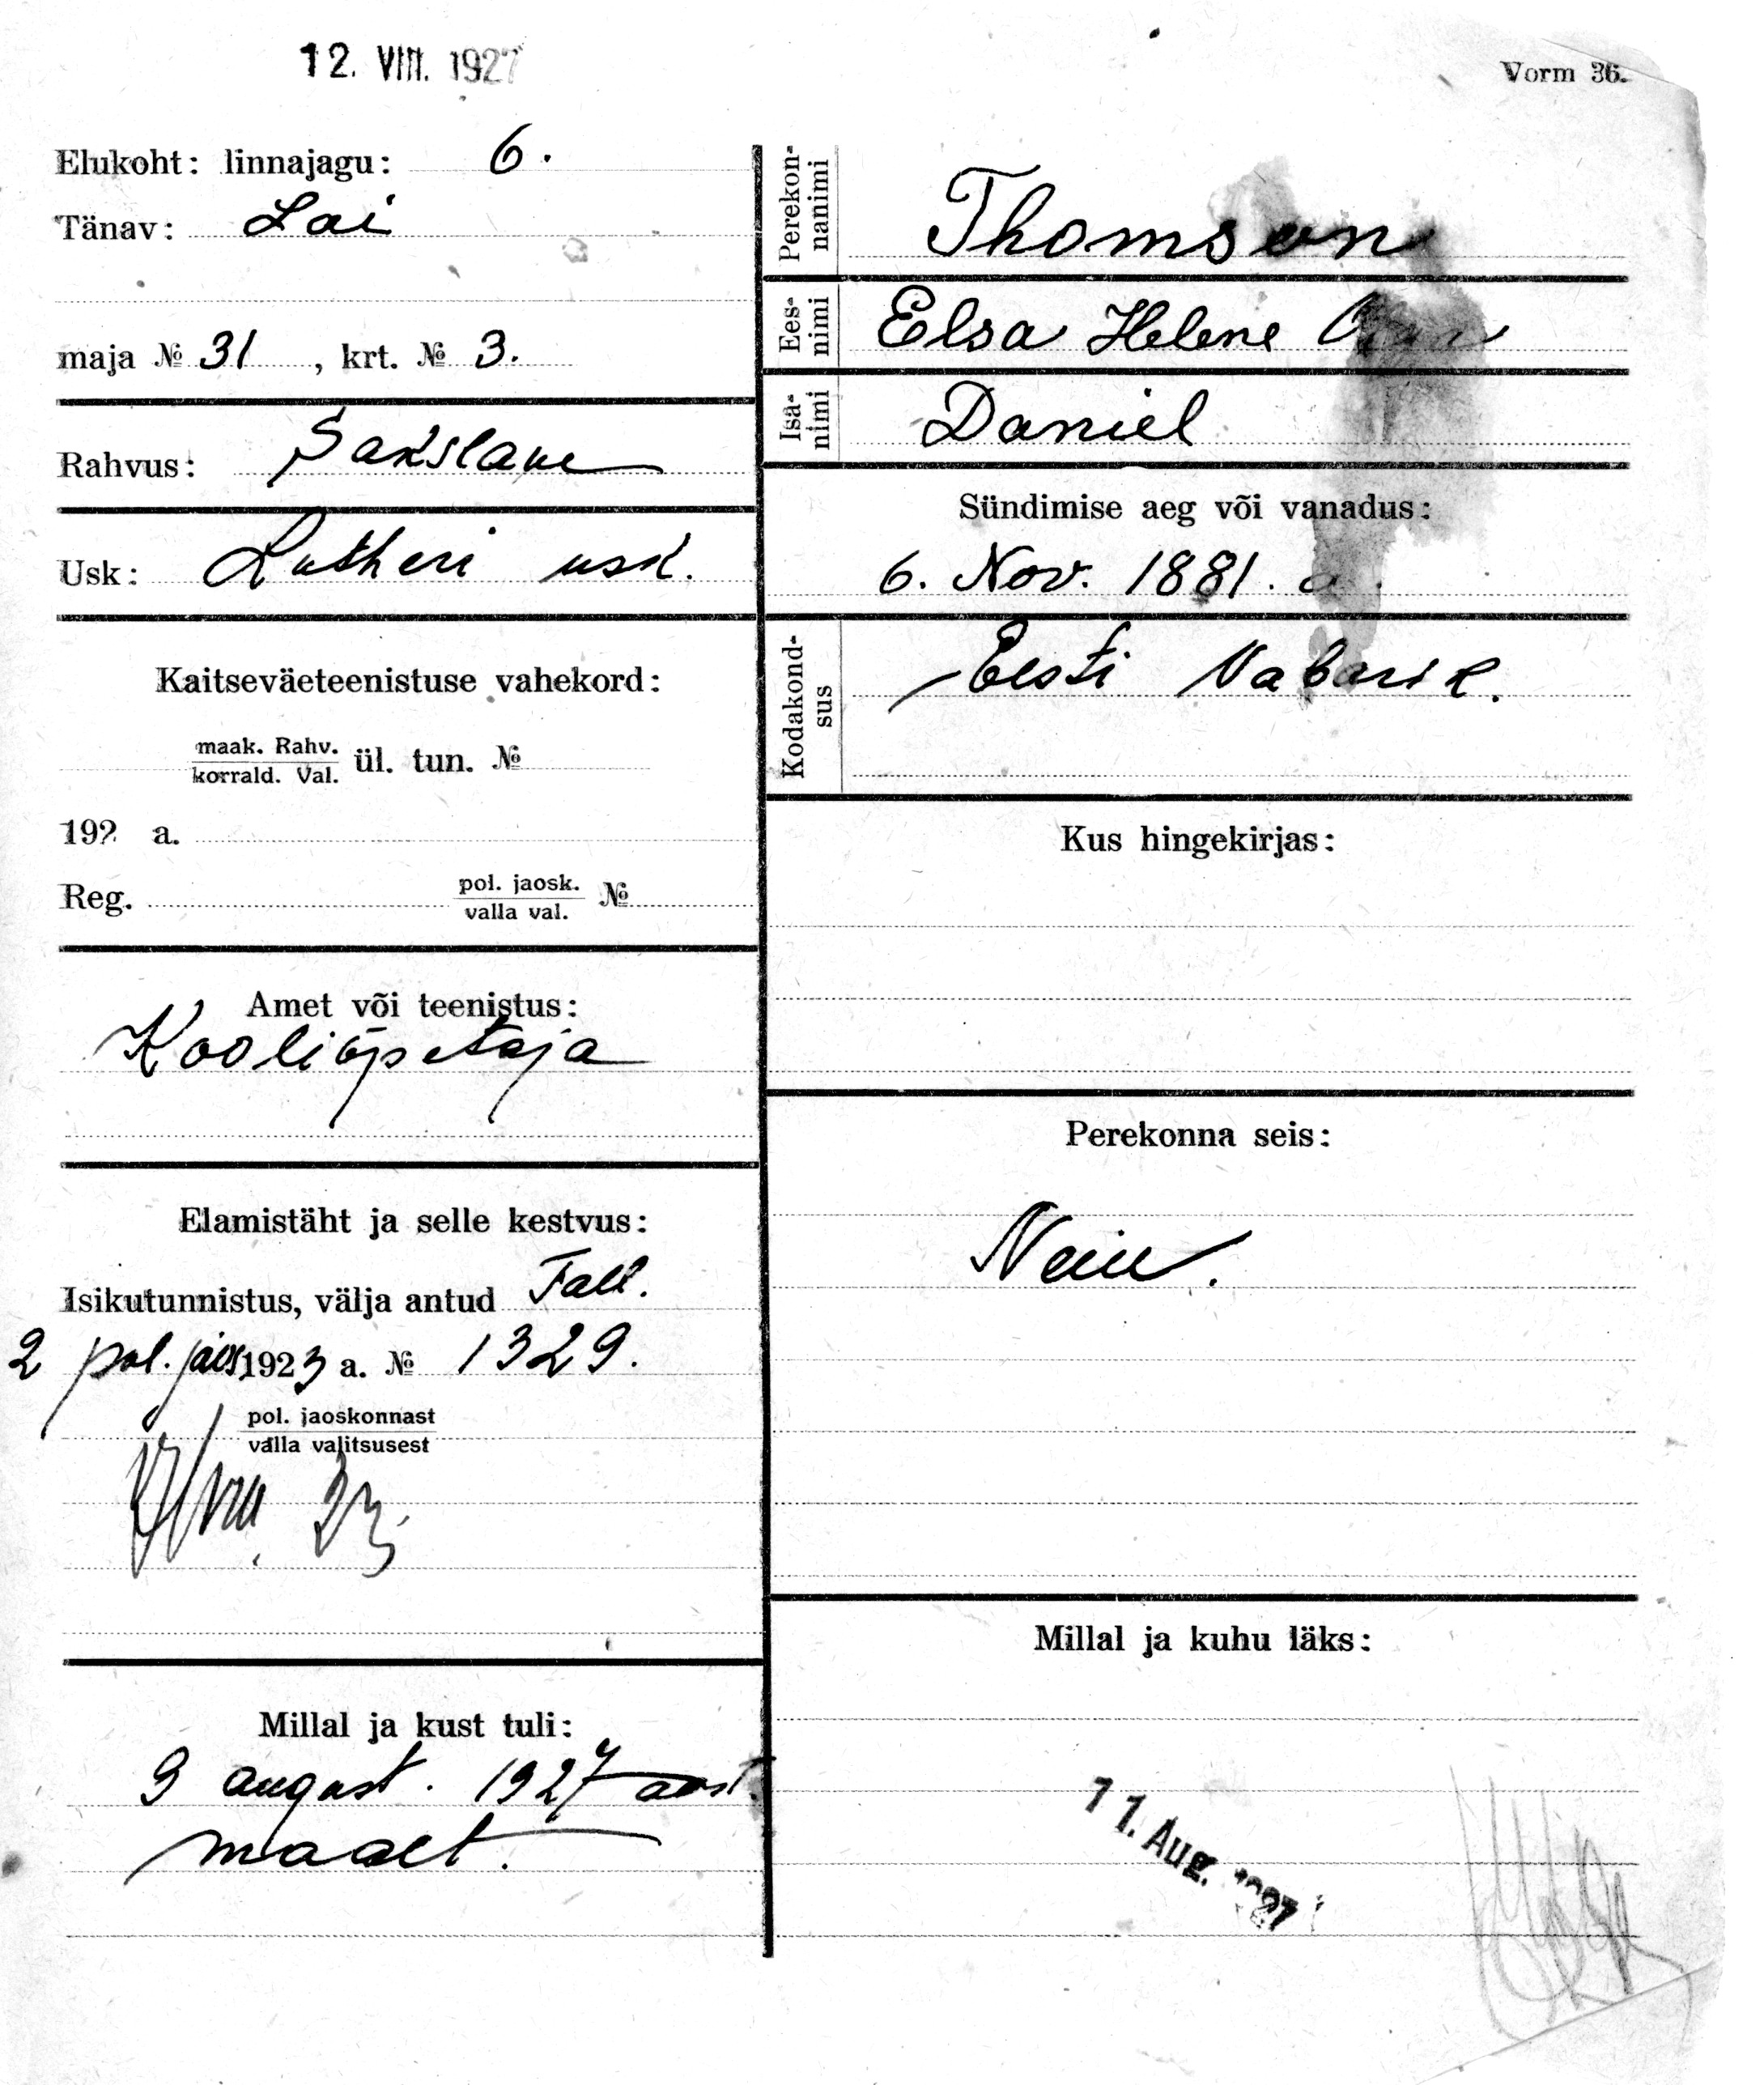 12. VIII. 1927
Vorm 36.
Elukoht: linnajagu: 6.
Tänav: Lai
maja № 31, krt. № 3.
Rahvus: Sakslane
Usk: Lutheri usk.
Kaitseväeteenistuse vahekord:
maak. Rahv.
korrald. Val. ül. tun. №
192 a.
Reg. pol. jaosk. №
valla val.
Amet või teenistus:
Kooliõpetaja
Elamistäht ja selle kestvus:
Isikutunnistus, välja antud Tall.
2 pol. jaos 1923 a. № 1329.
pol. jaoskonnast
valla valitsusest
Millal ja kust tuli:
9 august. 1927 aast.
maalt.
Perekonnanimi
Thomson
Eesnimi
Elsa Helene
Isanimi
Daniel
Sündimise aeg või vanadus:
6. Nov. 1881. a.
Kodakondsus
Eesti Vabarik.
Kus hingekirjas:
Perekonna seis:
Neiu.
Millal ja kuhu läks:
11. Aug. 1927